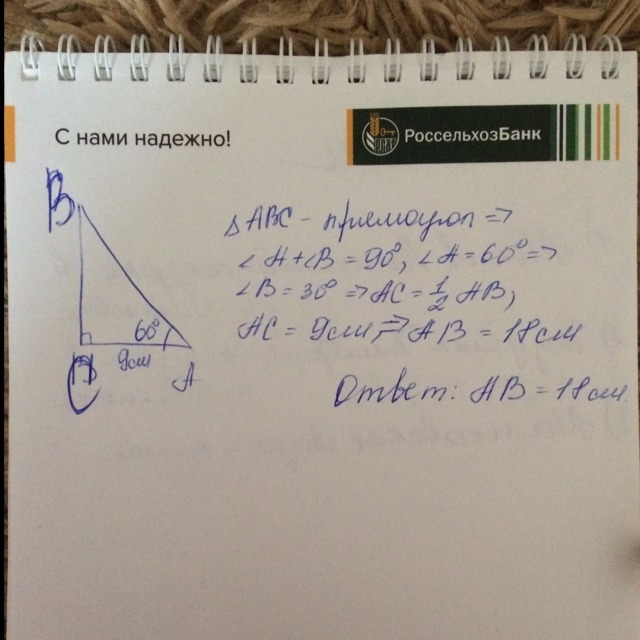 С нами надежно!
РСХБ
РоссельхозБанк
B
60°
9см
C
A
△ABC - прямоугол =>
∠A+∠B = 90°, ∠A = 60° =>
∠B = 30° => AC = 1/2 AB,
AC = 9см, => AB = 18 см
Ответ: AB = 18 см.